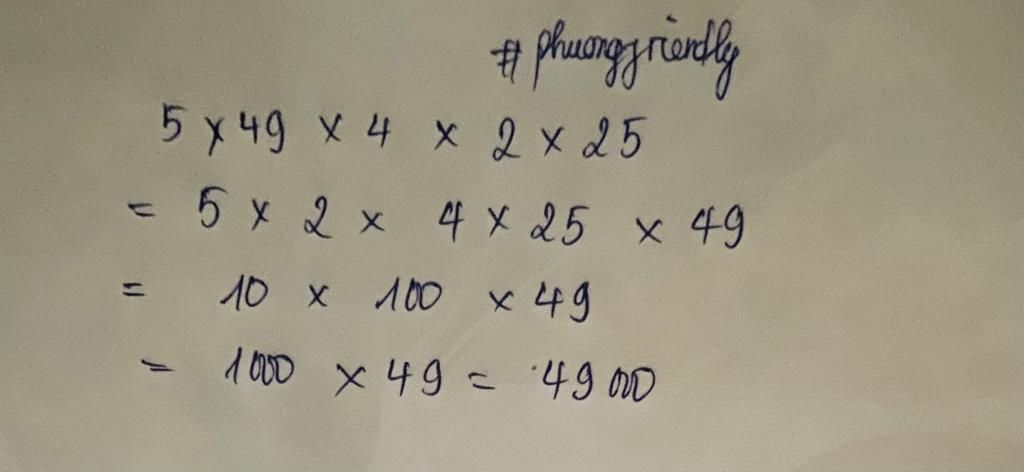 # phuongfriendly
5 x 49 x 4 x 2 x 25
= 5 x 2 x 4 x 25 x 49
= 10 x 100 x 49
= 1000 x 49 = 49000